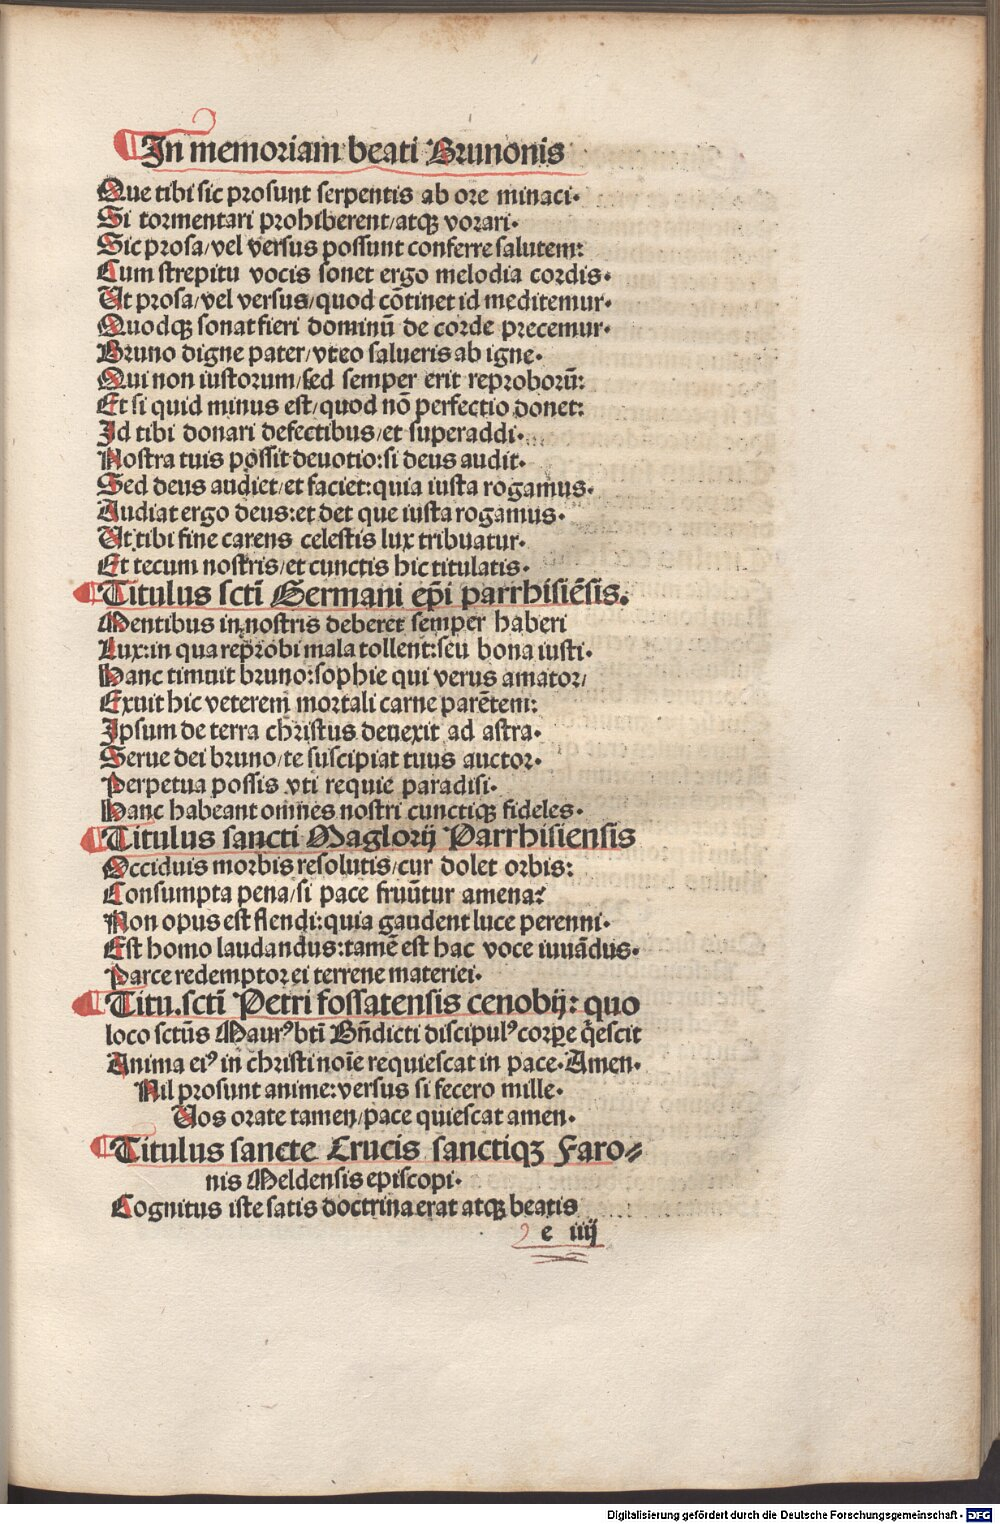 In memoriam beati Brunonis
Que tibi sic prosunt serpentis ab ore minaci·
Si tormentari prohiberent/atqꝫ vorari·
Sic prosa/vel versus possunt conferre salutem:
Cum strepitu vocis sonet ergo melodia cordis·
Ut prosa/vel versus/quod cōtinet id meditemur·
Quodqꝫ sonat fieri dominū de corde precemur·
Bruno digne pater/vt eo salueris ab igne·
Qui non iustorum/sed semper erit reproborū:
Et si quid minus est/quod nō perfectio donet:
Id tibi donari defectibus/et superaddi·
Nostra tuis possit deuotio:si deus audit·
Sed deus audiet/et faciet:quia iusta rogamus·
Audiat ergo deus:et det que iusta rogamus·
Ut tibi fine carens celestis lux tribuatur·
Et tecum nostris/et cunctis hic titulatis·
Titulus sctī Germani ep̄i parrhisiēsis.
Mentibus in nostris deberet semper haberi
Lux:in qua reprobi mala tollent:seu bona iusti·
Hanc timuit bruno:sophie qui verus amator/
Exuit hic veterem mortali carne parētem:
Ipsum de terra christus deuexit ad astra·
Serue dei bruno/te suscipiat tuus auctor·
Perpetua possis vti requie paradisi·
Hanc habeant omnes nostri cunctiqꝫ fideles·
Titulus sancti Maglorij Parrhisiensis
Occiduis morbis resolutis/cur dolet orbis:
Consumpta pena/si pace fruūtur amena?
Non opus est flendi:quia gaudent luce perenni·
Est homo laudandus:tamē est hac voce iuuādus·
Parce redemptor ei terrene materiei·
Titu.sctī Petri fossatensis cenobij: quo
loco sctūs Maurꝰ btī Bn̄dicti discipulꝰ corꝑe q̄escit
Anima eiꝰ in christi noīe requiescat in pace·Amen·
Nil prosunt anime:versus si fecero mille·
Vos orate tamen/pace quiescat amen·
Titulus sancte Crucis sanctiqꝫ Faro⸗
nis Meldensis episcopi·
Cognitus iste satis doctrina erat atqꝫ beatis
e iiij
Digitalisierung gefördert durch die Deutsche Forschungsgemeinschaft - DFG